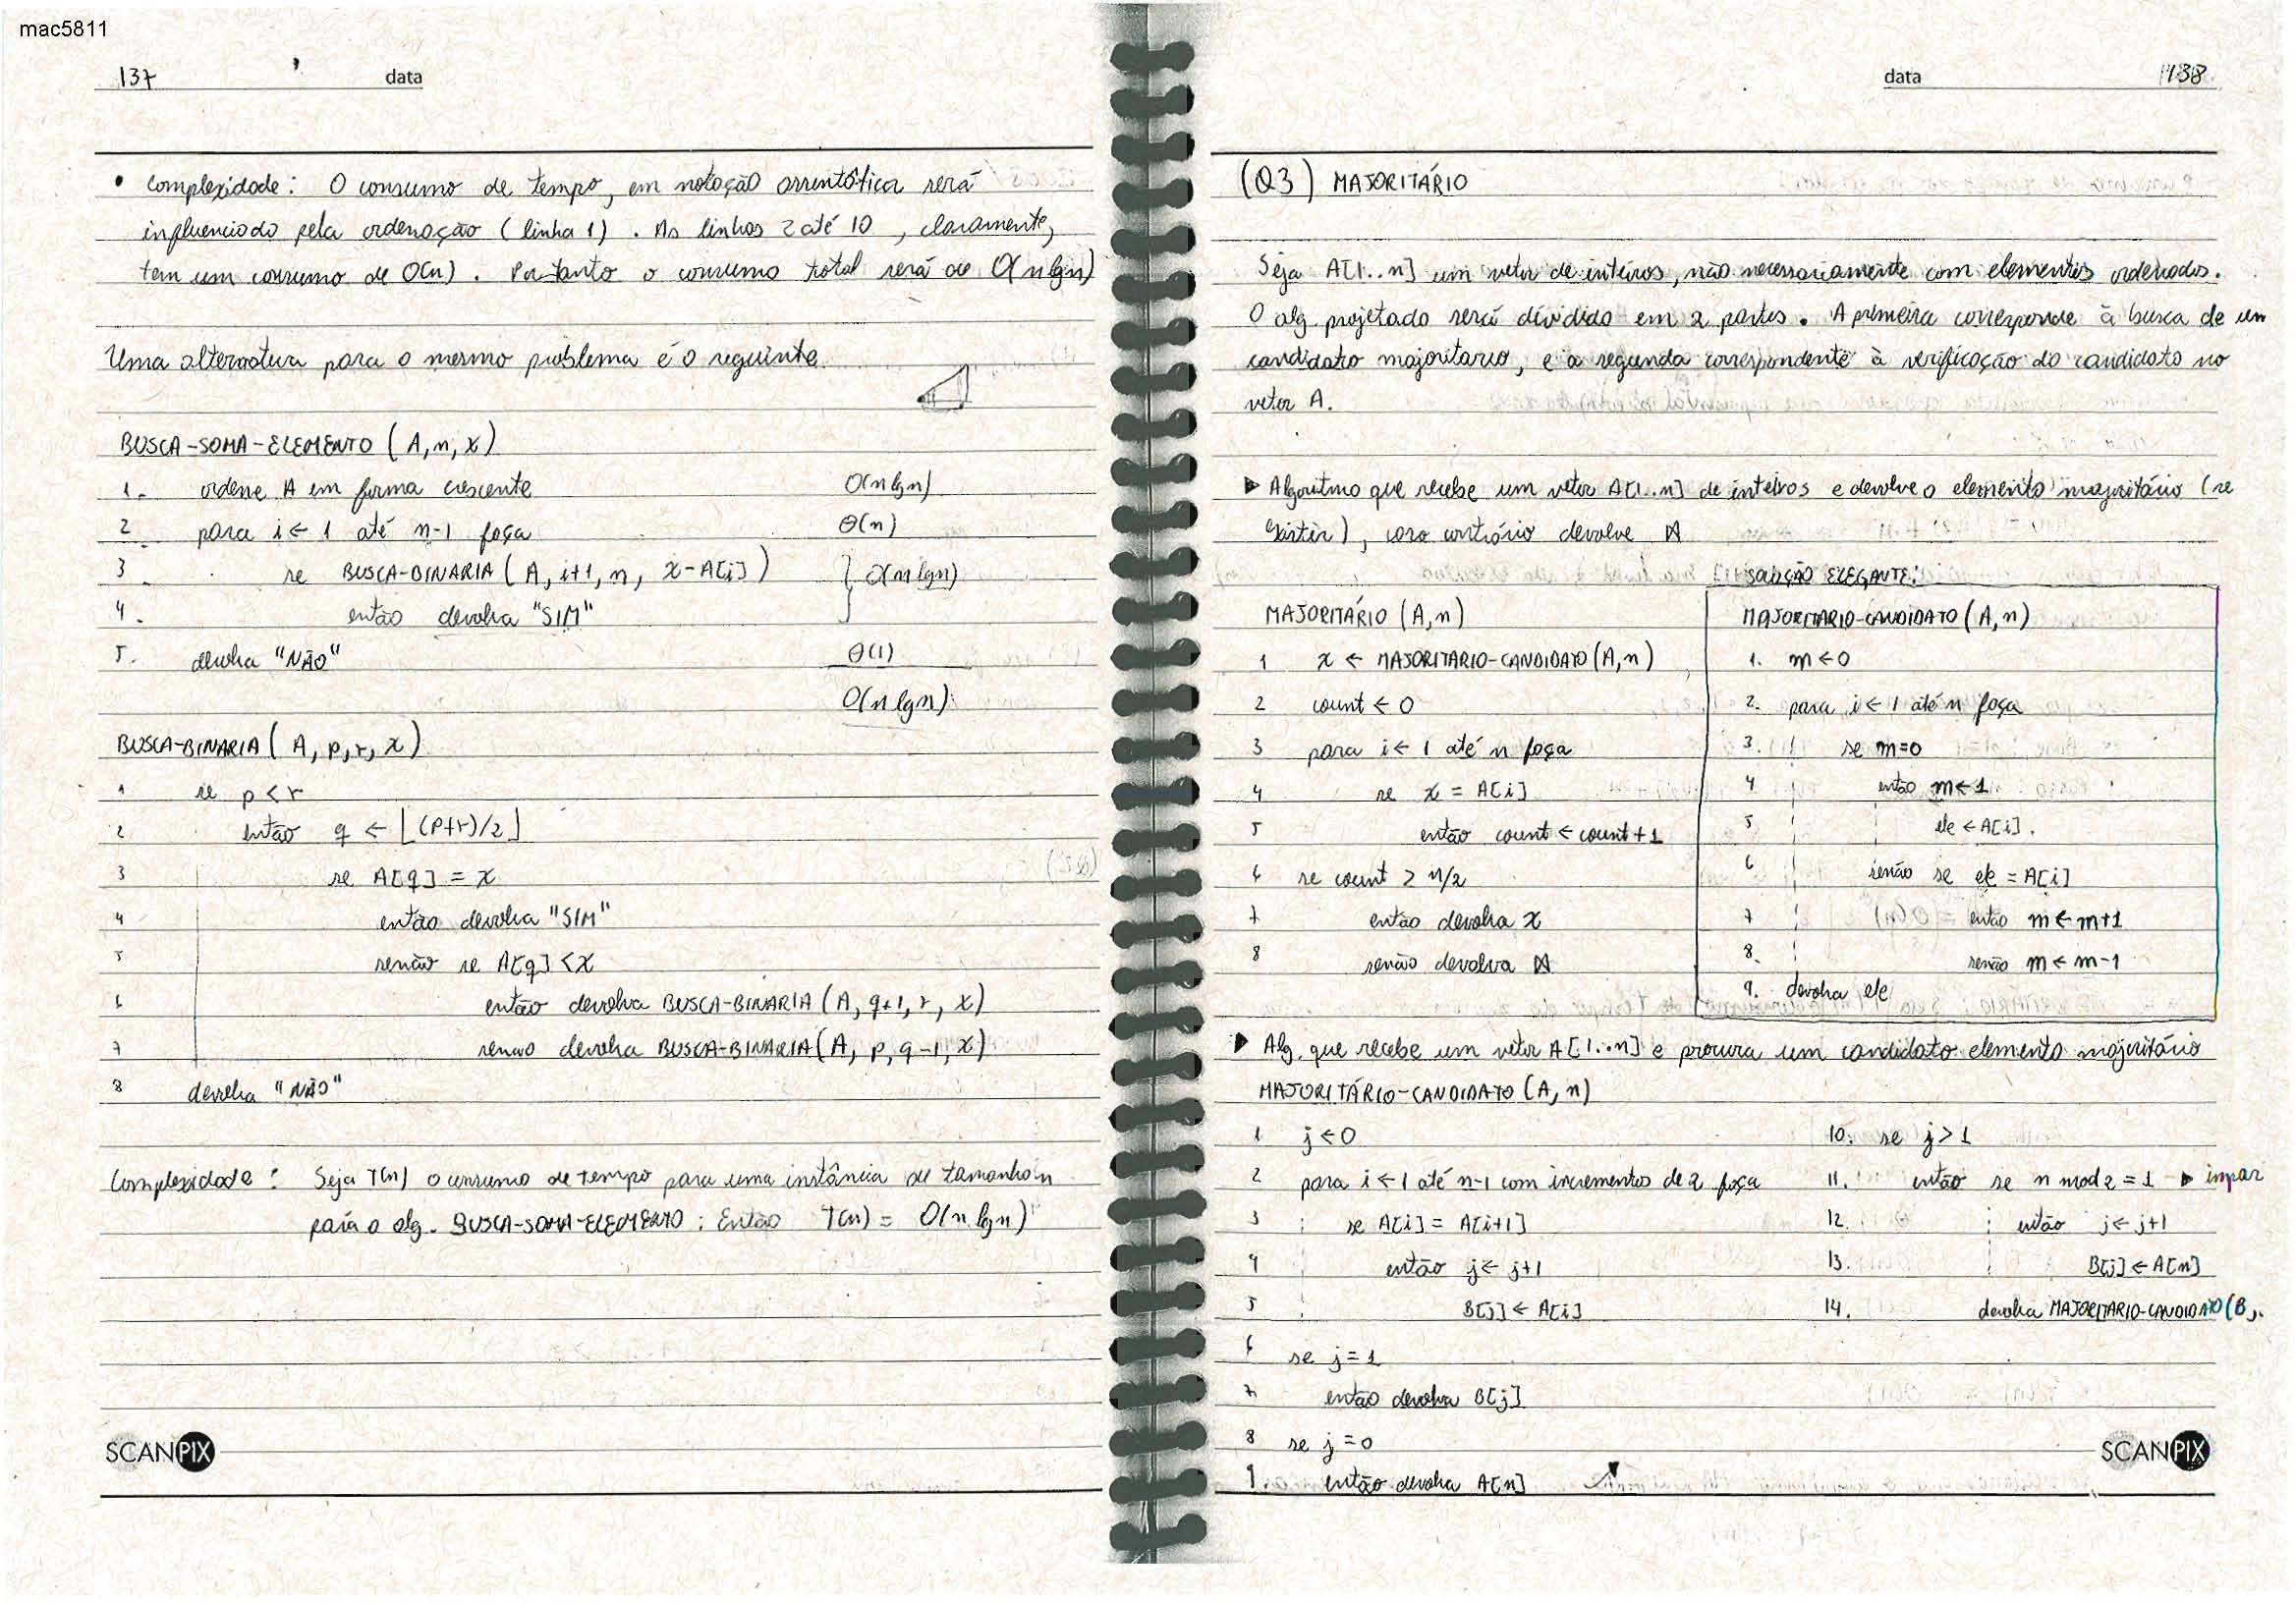 mac5811
137 data
• Complexidade: O consumo de tempo, em notação assintótica será
influenciado pela ordenação (linha 1). As linhas 2 até 10, claramente,
tem um consumo de O(n). Portanto o consumo total será de O(n lgn)
Uma alternativa para o mesmo problema é o seguinte
BUSCA-SOMA-ELEMENTO (A, n, x)
1. ordene A em forma crescente O(n lgn)
2 para i ← 1 até n-1 faça Θ(n)
3. se BUSCA-BINARIA (A, i+1, n, x-A[i]) } O(n lgn)
4. então devolva "SIM"
5. devolva "NÃO" Θ(1)
O(n lgn)
BUSCA-BINARIA (A, p, r, x)
1 se p < r
2 então q ← ⌊(p+r)/2⌋
3 se A[q] = x
4 então devolva "SIM"
5 senão se A[q] < x
6 então devolva BUSCA-BINARIA (A, q+1, r, x)
7 senao devolva BUSCA-BINARIA (A, p, q-1, x)
8 devolva "NÃO"
Complexidade: Seja T(n) o consumo de tempo para uma instância de tamanho n
para o alg. BUSCA-SOMA-ELEMENTO: Então T(n) = O(n lgn)
SCANPIX
data 138
(Q3) MAJORITÁRIO
Seja A[1..n] um vetor de inteiros, não necessariamente com elementos ordenados.
O alg. projetado será dividido em 2 partes. A primeira corresponde à busca de um
candidato majoritario, e a segunda correspondente à verificação do candidato no
vetor A.
▶ Algoritmo que recebe um vetor A[1..n] de inteiros e devolve o elemento majoritário (se
existir), caso contrário devolve ⋈
MAJORITÁRIO (A, n)
1 x ← MAJORITARIO-CANDIDATO (A, n)
2 count ← 0
3 para i ← 1 até n faça
4 se x = A[i]
5 então count ← count + 1
6 se count > n/2
7 então devolva x
8 senão devolva ⋈
SOLUÇÃO ELEGANTE:
MAJORITARIO-CANDIDATO (A, n)
1. m ← 0
2. para i ← 1 até n faça
3. se m=0
4 então m ← 1
5 ele ← A[i].
6 senão se ele = A[i]
7 então m ← m+1
8. senão m ← m-1
9. devolva ele
▶ Alg. que recebe um vetor A[1..n] e procura um candidato elemento majoritário
MAJORITÁRIO-CANDIDATO (A, n)
1 j ← 0
2 para i ← 1 até n-1 com incrementos de 2 faça
3 se A[i] = A[i+1]
4 então j ← j+1
5 B[j] ← A[i]
6 se j = 1
7 então devolva B[j]
8 se j = 0
9. então devolva A[n]
10. se j > 1
11. então se n mod 2 = 1 ▶ impar
12. então j ← j+1
13. B[j] ← A[n]
14. devolva MAJORITARIO-CANDIDATO (B,
SCANPIX